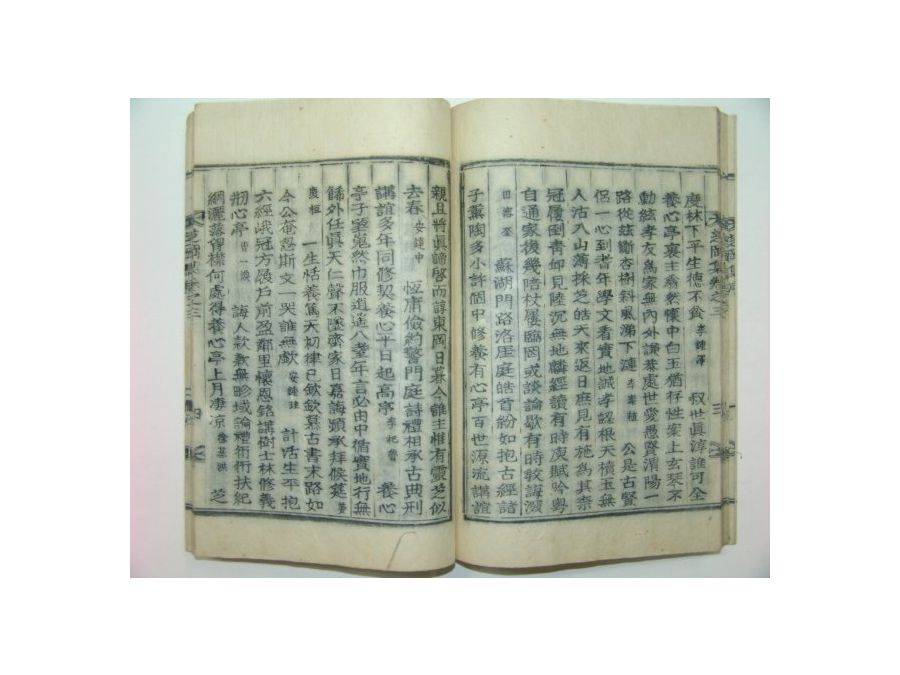 度林下平生德不貧 李鍾澤 叔世眞淳誰河全
養心亭裏主翁然懷中白玉猶存性案上玄琴不
動絃孝友爲家無內外謙恭處世愛愚賢渭陽一
路從玆斷杏樹斜風涕下漣 公是古賢
侶一心到耉年學文看實地誠孝認根天積玉無
冠履倒書蚪見陸沉無地麟經讀有時庾賦吟粤
人沽入山薄採芝皓天來返日庶見有施爲其奈
自通家後幾陪杖屨臨罔或談論歇有時敎誨淚
蘇湖門路洛厓庭皓首紛如抱古經諸
子薰陶多小許個中修養有心亭百世源流講誼
親且將眞諦啓而諄東岡日暮今誰主惟有靈芝似
去春 安鍾中 恆庸儉約警門庭詩禮相承古典刑
講誼多年同修契養心半日起高亭 養心
亭子望嵬然巾服逍遙八耋年言必由中循實地行無
餙外任眞天仁聲不墜齊家日嘉誨頻承拜候筵
一生恬養篤天初律己欽欽慕古書末路如
今公奄忽斯文一哭誰無歔 安鍾 計活生平抱
六經峨冠方領戶前盈鄰里懷恩銘講樹士林修義
刱心亭 誨人款款無畛域論禮術術扶紀
綱灑落僊襟何處得養心亭上月凄凉 徐基洪 芝